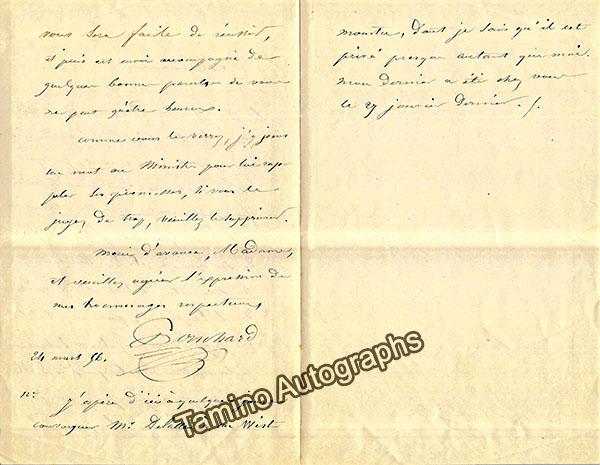 vous sera facile de réussir,
et puis cet envoi accompagné de
quelques bonnes paroles de vous
ne peut qu'être heureux.
Comme vous le verrez, j'y joins
un mot au Ministre pour lui rap-
peler ses promesses, si vous le
jugez de trop, veuillez le supprimer.
Merci d'avance, Madame,
et veuillez agréer l'expression de
mes hommages respectueux,
Bernhard
24 mars 56.
J'espère d'ici à quelques
Mr. Whist
monstre, dont je sais qu'il est
privé presque autant que moi.
mon dernier a été chez vous
le 27 janvier dernier. /.
Tamino Autographs